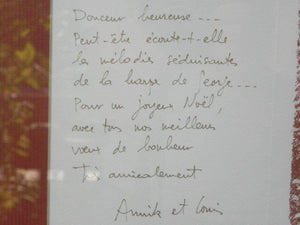 Douceur heureuse ...
Peut-être écoute-t-elle
les mélodies séduisantes
de la harpe de ...
Pour un joyeux Noël,
avec tous nos meilleurs
vœux de bonheur
Très amicalement
Annick et Louis